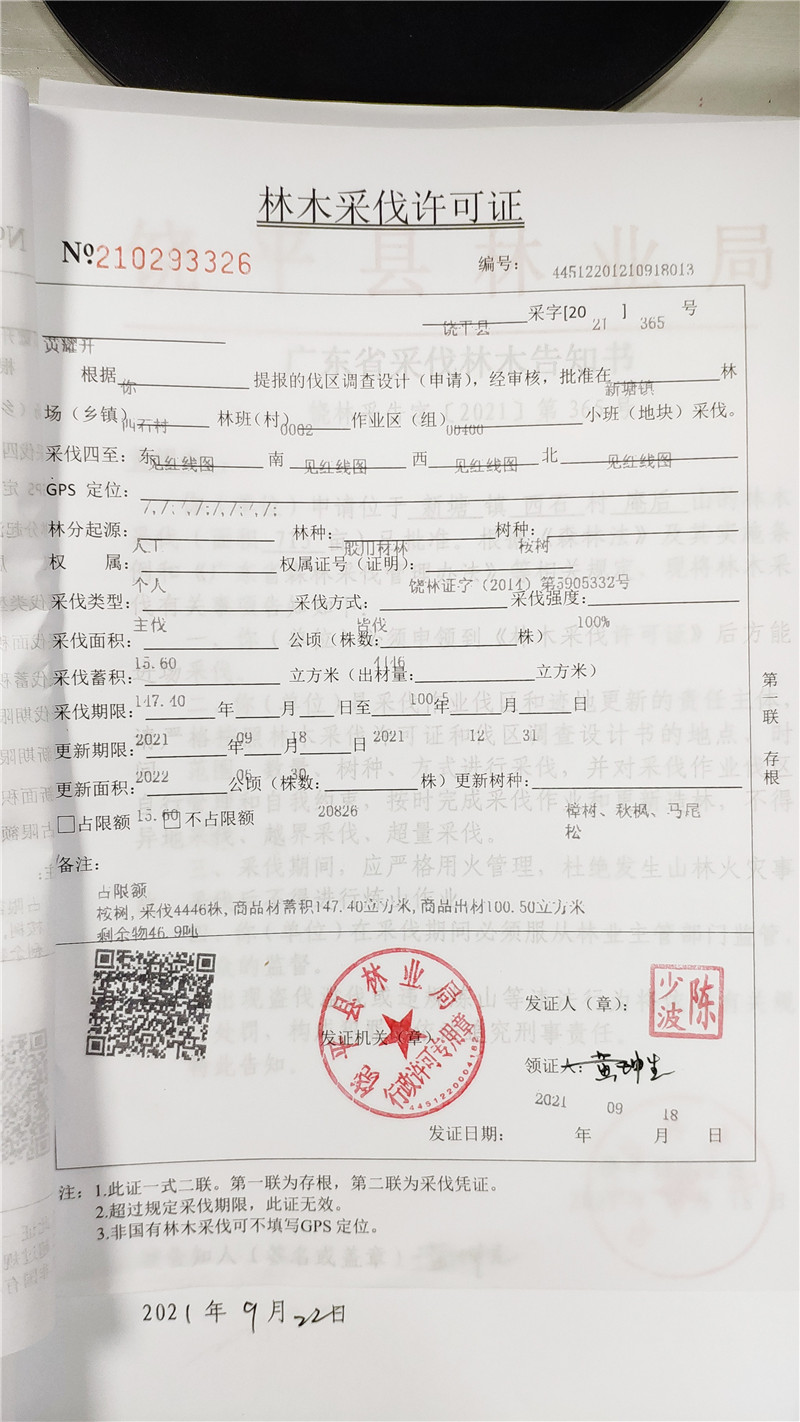 林木采伐许可证
№210293326
编号： 44512201210918013
饶平县 采字[20 21 ] 365 号
黄耀开
根据 你 提报的伐区调查设计（申请），经审核，批准在 新塘镇 林
场（乡镇） 西石村 林班(村) 0002 作业区（组) 00400 小班（地块）采伐。
采伐四至： 东 见红线图 南 见红线图 西 见红线图 北 见红线图
GPS 定位： /,/;/,/;/,/;/,/;
林分起源： 人工 林种： 一般用材林 树种： 桉树
权 属： 个人 权属证号（证明）： 饶林证字（2014）第5905332号
采伐类型： 主伐 采伐方式： 皆伐 采伐强度： 100%
采伐面积： 15.60 公顷（株数： 4446 株）
采伐蓄积： 147.40 立方米（出材量： 100.5 立方米）
采伐期限： 2021 年 09 月 18 日至 2021 年 12 月 31 日
更新期限： 2022 年 06 月 30 日
更新面积： 15.60 公顷（株数： 20826 株）更新树种： 樟树、秋枫、马尾
松
□占限额 □不占限额
备注：
占限额
桉树,采伐4446株,商品材蓄积147.40立方米,商品出材100.50立方米
剩余物46.9吨
第一联 存根
饶平县林业局
行政许可专用章
发证机关（章）
发证人（章）： 陈少波
领证人： 黄坤生
2021 09 18
发证日期： 年 月 日
注： 1.此证一式二联。第一联为存根，第二联为采伐凭证。
2.超过规定采伐期限，此证无效。
3.非国有林木采伐可不填写GPS定位。
2021年9月22日